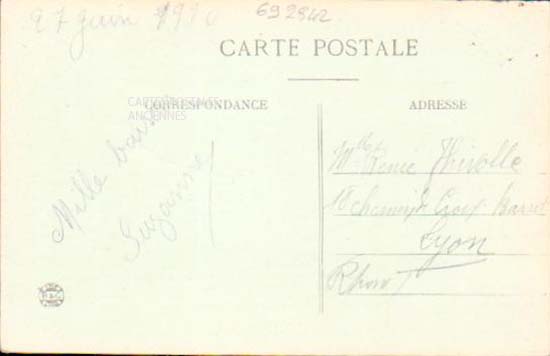 27 juin 1910
692842
CARTE POSTALE
CARTES POSTALES
ANCIENNES
CORRESPONDANCE
ADRESSE
Mille bais
Suzanne
Mlle Renée Thivolle
Chemin Croix Barret
Lyon
Rhone
B&G